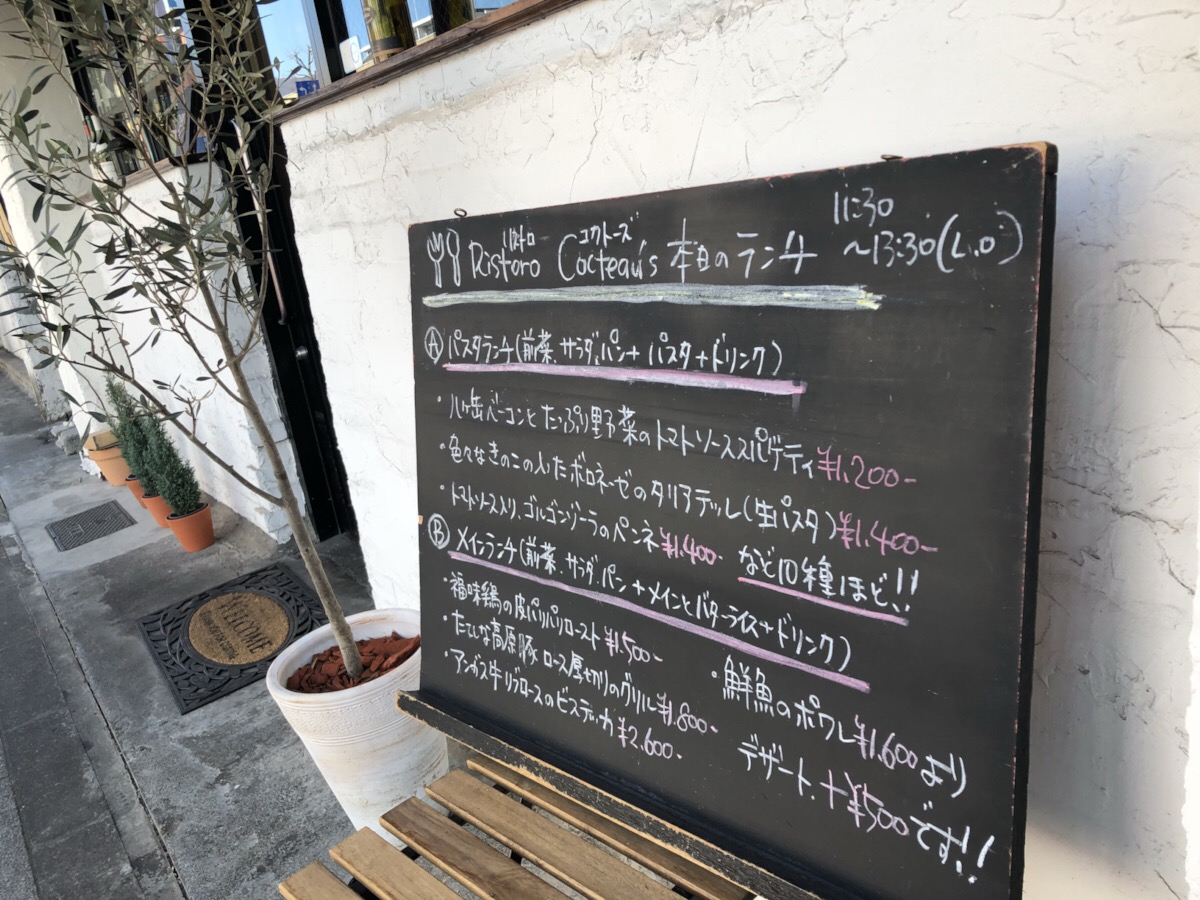 リストロ コクトーズ 11:30
Ristoro Cocteau's 本日のランチ ～13:30(L.O)
Ⓐ パスタランチ(前菜、サラダ、パン+パスタ+ドリンク)
・八ヶ岳ベーコンとたっぷり野菜のトマトソーススパゲティ ¥1.200-
・色々なきのこの入ったボロネーゼのタリアテッレ(生パスタ) ¥1.400-
・トマトソース入り、ゴルゴンゾーラのペンネ ¥1.400- など10種ほど!!
Ⓑ メインランチ(前菜、サラダ、パン+メインとバターライス+ドリンク)
・福味鶏の皮パリパリロースト ¥1.500-
・たてしな高原豚ロース厚切りのグリル ¥1.800-
・アンガス牛リブロースのビステッカ ¥2.600-
・鮮魚のポワレ ¥1.600より
デザート、+¥500です!!
WELCOME